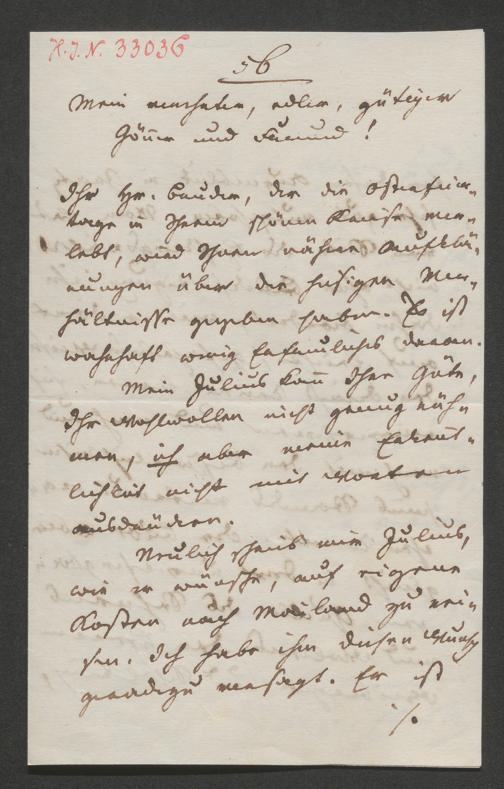 H.I.N. 33036
56
Mein verehrter, edler, gütiger
Gönner und Freund!
Ihr Hr. Bruder, der die Osterfeier-
tage in Ihrem schönen Kreise ver-
lebt, wird Ihnen nähere Aufklä-
rungen über die hiesigen Ver-
hältnisse gegeben haben. Es ist
wahrhaft wenig Erfreuliches daran.
Mein Julius kann Ihre Güte,
Ihr Wohlwollen nicht genug rüh-
men, ich aber meine Erkennt-
lichkeit nicht mit Worten
ausdrücken.
Neulich schrieb mir Julius,
wie er wünsche, auf eigene
Kosten nach Mailand zu rei-
sen. Ich habe ihm diesen Wunsch
geradezu versagt. Er ist
./.